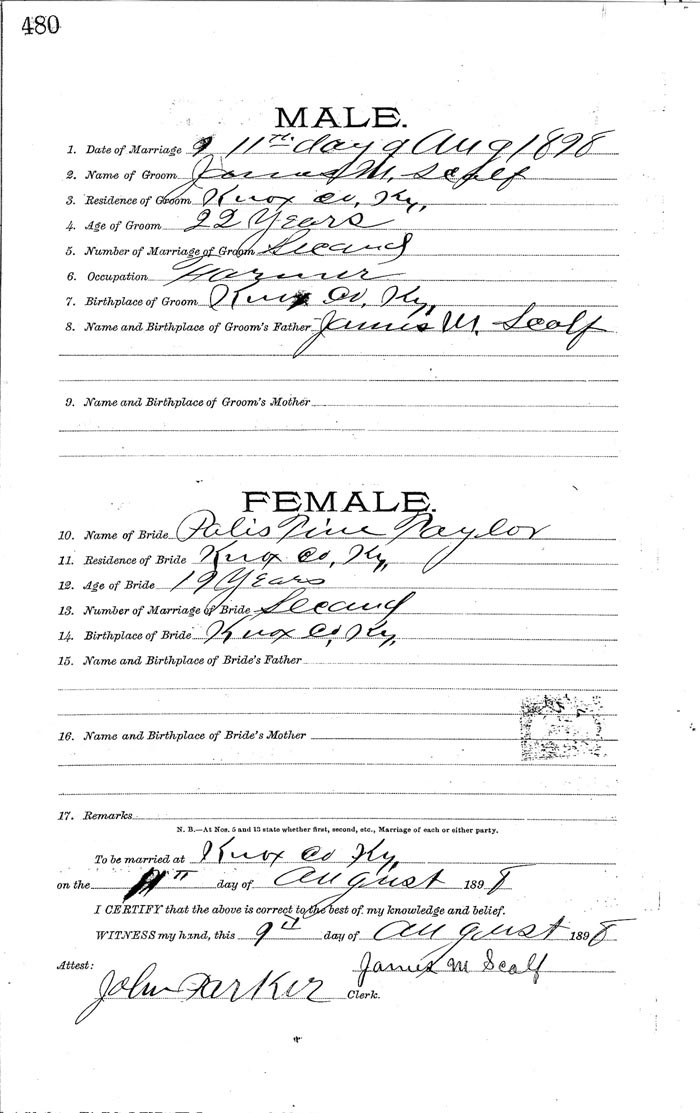 480
MALE.
1. Date of Marriage 11th day of Aug 1898
2. Name of Groom James M. Scalf
3. Residence of Groom Knox Co, Ky,
4. Age of Groom 22 Years
5. Number of Marriage of Groom Second
6. Occupation Farmer
7. Birthplace of Groom Knox Co, Ky,
8. Name and Birthplace of Groom's Father James M. Scalf
9. Name and Birthplace of Groom's Mother
FEMALE.
10. Name of Bride Palis Tine Taylor
11. Residence of Bride Knox Co, Ky,
12. Age of Bride 19 Years
13. Number of Marriage of Bride Second
14. Birthplace of Bride Knox Co, Ky,
15. Name and Birthplace of Bride's Father
16. Name and Birthplace of Bride's Mother
17. Remarks
N. B.—At Nos. 5 and 13 state whether first, second, etc., Marriage of each or either party.
To be married at Knox Co Ky,
on the 11th day of August 1898
I CERTIFY that the above is correct to the best of my knowledge and belief.
WITNESS my hand, this 9th day of August 1898
Attest: James M Scalf
John Parker Clerk.